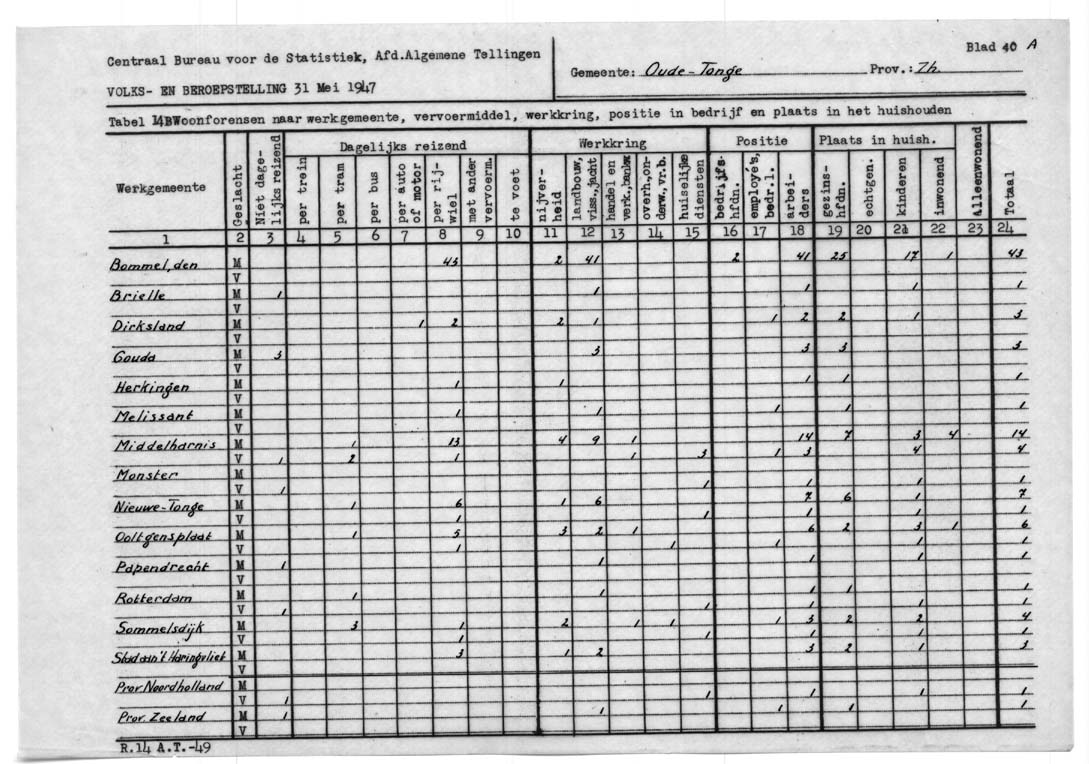 Centraal Bureau voor de Statistiek, Afd.Algemene Tellingen
VOLKS- EN BEROEPSTELLING 31 Mei 1947
Blad 40 A
Gemeente: Oude-Tonge Prov.: Zh.
Tabel 14B Woonforensen naar werkgemeente, vervoermiddel, werkkring, positie in bedrijf en plaats in het huishouden
Werkgemeente Geslacht Niet dage-lijks reizend Dagelijks reizend Werkkring Positie Plaats in huish. Alleenwonend Totaal
per trein per tram per bus per auto of motor per rij-wiel met ander vervoerm. te voet nijver-heid landbouw, viss.,jacht handel en verk.,bankw. overh.,on-derw.,vr.b. huiselijke diensten bedrijfs-hfdn. employe's, bedr.l. arbei-ders gezins-hfdn. echtgen. kinderen inwonend
1 2 3 4 5 6 7 8 9 10 11 12 13 14 15 16 17 18 19 20 21 22 23 24
Bommel, den M 43 2 41 2 41 25 17 1 43
V
Brielle M 1 1 1 1 1
V
Dirksland M 1 2 2 1 1 2 2 1 3
V
Gouda M 3 3 3 3 3
V
Herkingen M 1 1 1 1 1
V
Melissant M 1 1 1 1 1
V
Middelharnis M 1 13 4 9 1 14 7 3 4 14
V 1 2 1 1 3 1 3 4 4
Monster M
V 1 1 1 1 1
Nieuwe-Tonge M 1 6 1 6 7 6 1 7
V 1 1 1 1 1
Ooltgensplaat M 1 5 3 2 1 6 2 3 1 6
V 1 1 1 1 1
Papendrecht M 1 1 1 1 1
V
Rotterdam M 1 1 1 1 1
V 1 1 1 1 1
Sommelsdijk M 3 1 2 1 1 1 3 2 2 4
V 1 1 1 1 1
Stad aan't Haringvliet M 3 1 2 3 2 1 3
V
Prov. Noordholland M
V 1 1 1 1 1
Prov. Zeeland M 1 1 1 1 1
V
R.14 A.T.-49